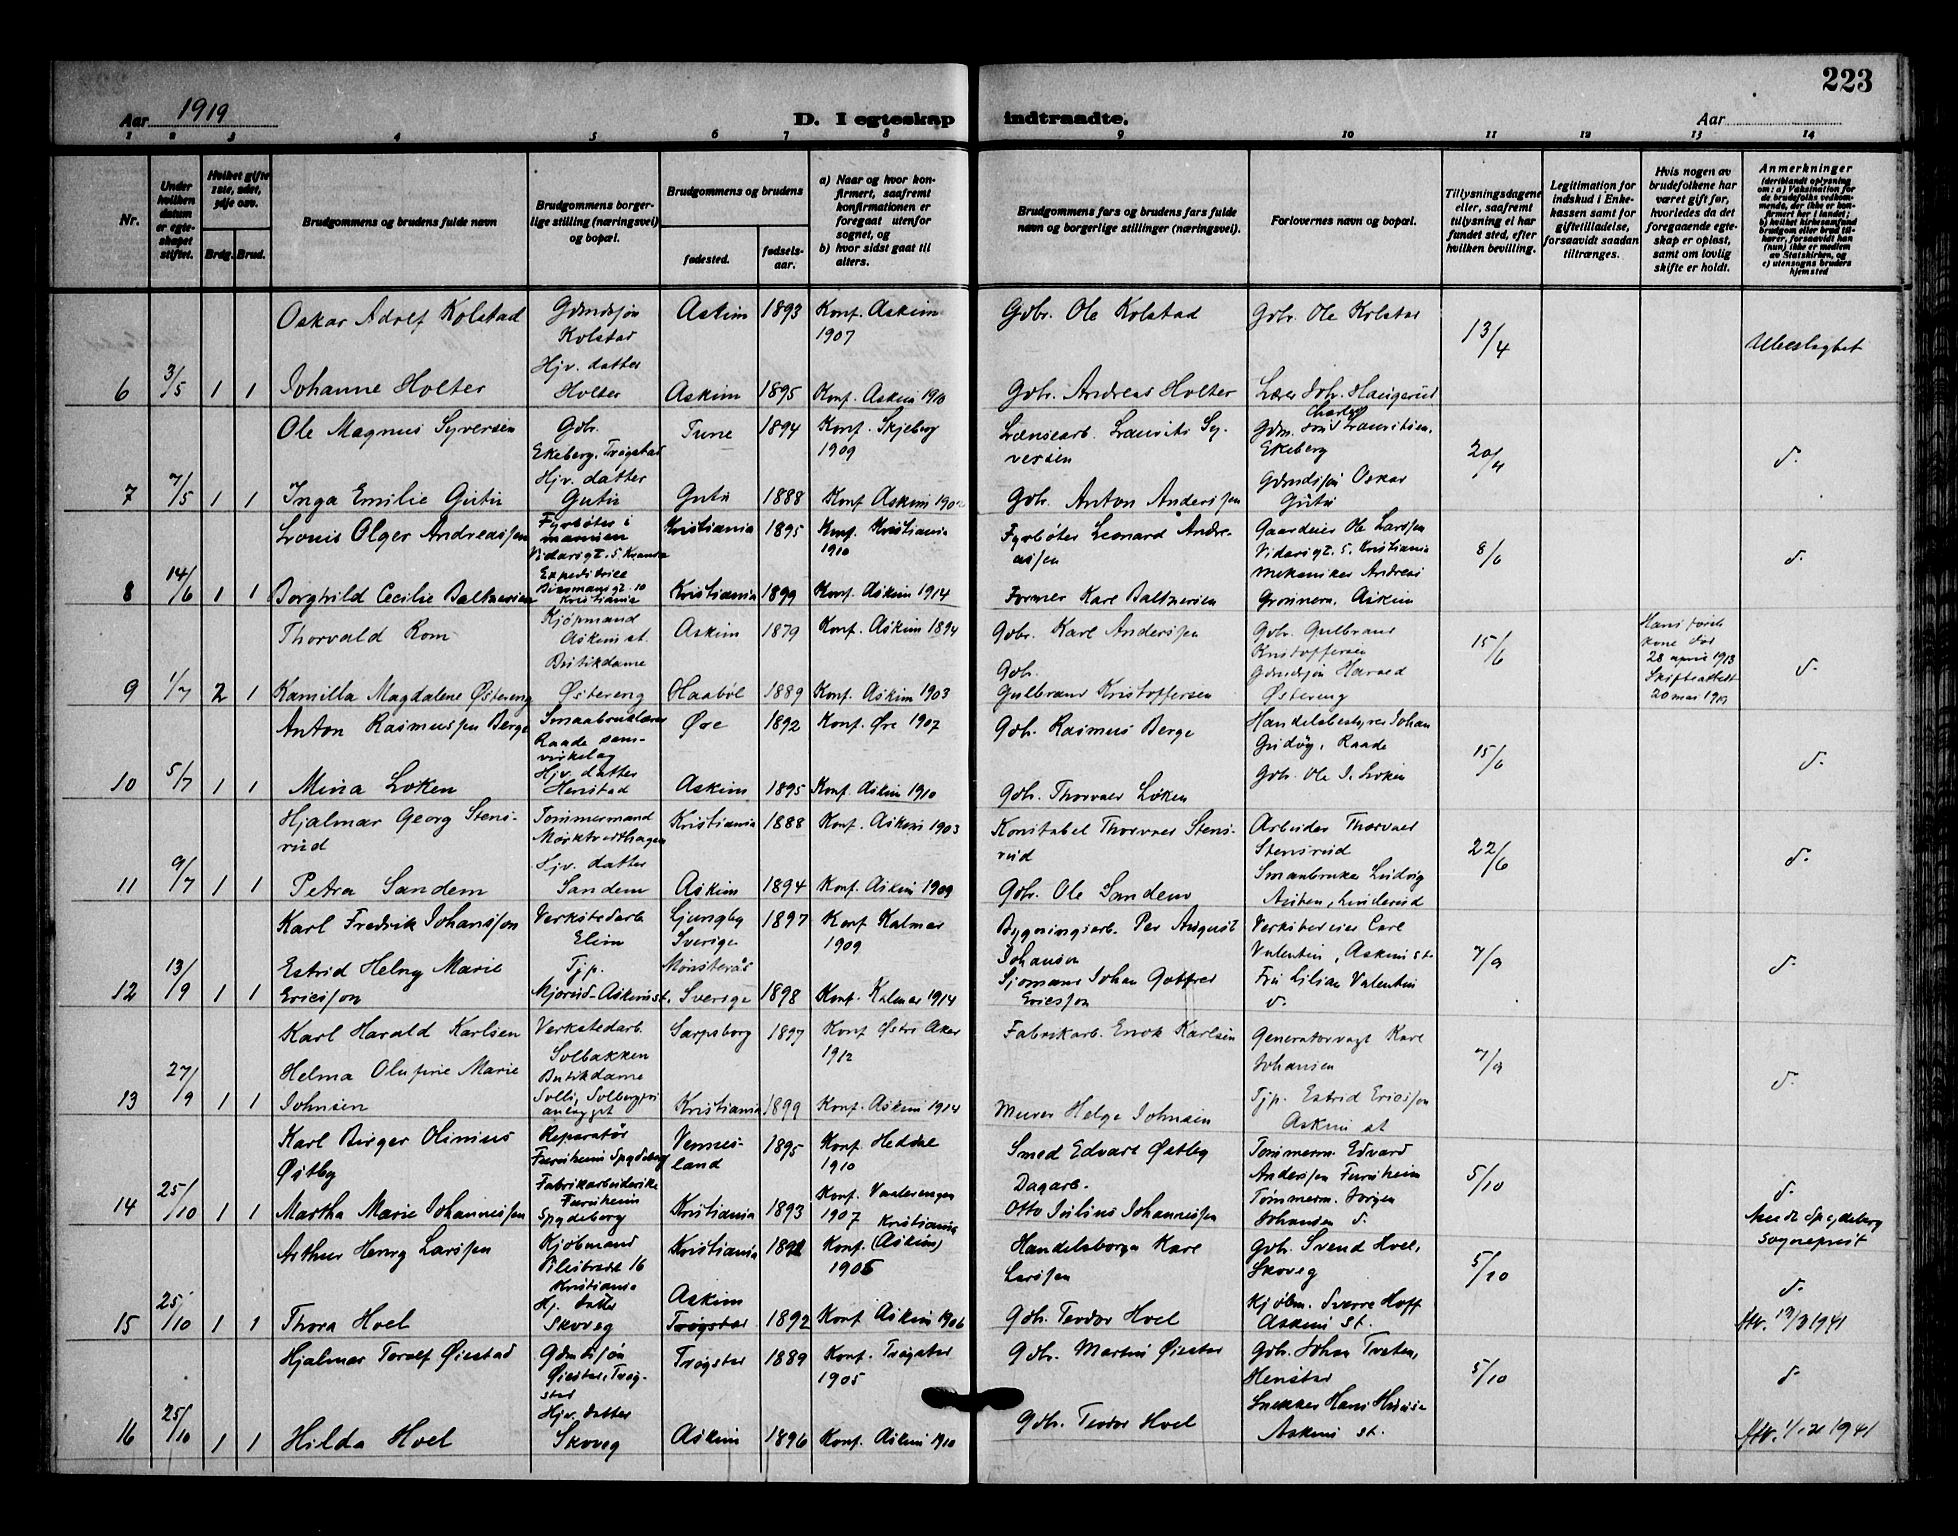 223
Aar 1919
D. I egteskap indtraadte.
Aar
1 2 3 4 5 6 7 8 9 10 11 12 13 14
Nr.
Under hvilken datum er egteskapet stiftet.
Hvilket gifte 1ste, 2det, 3dje osv.
Brdg. Brud.
Brudgommens og brudens fulde navn
Brudgommens borgerlige stilling (næringsvei) og bopæl.
Brudgommens og brudens
fødested.
fødselsaar.
a) Naar og hvor konfirmert, saafremt konfirmationen er foregaat utenfor sognet, og
b) hvor sidst gaat til alters.
Brudgommens fars og brudens fars fulde navn og borgerlige stillinger (næringsvei).
Forlovernes navn og bopæl.
Tillysningsdagene eller, saafremt tillysning ei har fundet sted, efter hvilken bevilling.
Legitimation for indskud i Enkekassen samt for giftetilladelse, forsaavidt saadan tiltrænges.
Hvis nogen av brudefolkene har været gift før, hvorledes da det foregaaende egteskap er opløst, samt om lovlig skifte er holdt.
Anmerkninger
(deriblandt oplysning om: a) Vaksination for de brudefolks vedkommende, der ikke er konfirmert her i landet; b) hvilket kirkesamfund brudgom eller brud tilhører, forsaavidt han (hun) ikke er medlem av Statskirken, og c) utensogns bruders hjemsted
Oskar Adolf Kolstad Gdmdsøn Kolstad Askim 1893 Konf. Askim 1907 Gdbr. Ole Kolstad Gdbr. Ole Kolstad 13/4 Ubeslegtet
6 3/5 1 1 Johanne Holter Hjv. datter Holter Askim 1895 Konf. Askim 1910 Gdbr. Andreas Holter Lærer Joh. Haugerud
Ole Magnus Syversen Gdbr. Ekeberg, Trøgstad Tune 1894 Konf. Skjeberg 1909 Lænsearb. Lauritz Syversen Gdm. Charles Lauritsen, Ekeberg 20/4 d.
7 7/5 1 1 Inga Emilie Gutu Hjv. datter Gutu Gutu 1888 Konf Askim Gdbr. Anton Anderssen Gdmdsøn Oskar Gutu
Louis Olger Andreassen Fyrbøter i marinen Vidarsgt. 5 Kristiania 1895 Konf. Kristiania 1910 Fyrbøter Leonard Andreassen Gaardeier Ole Larssen Vidarsgt. 5. Kristiania 8/6 d.
8 14/6 1 1 Borghild Cecilie Baltzersen Expeditrice Kristiania Kristiania 1899 Konf. Askim 1914 Former Karl Baltzersen Mekaniker Andreas Askim
Thorvald Rom Kjøpmand Askim st. Askim 1879 Konf. Askim 1894 Gdbr. Karl Anderssen Gdbr. Gulbrand Kristoffersen 15/6 Hans første kone død 28 april 1913 Skifteattest 20 mai d.
9 1/7 2 1 Kamilla Magdalene Østereng Butikdame Østereng Haabøl 1889 Konf. Askim 1903 Gdbr. Gulbrand Kristoffersen Gdmdsøn Harald Østereng
Anton Rasmussen Berge Raade samvirkelag Øre 1892 Konf. Øre 1907 Gdbr. Rasmus Berge Handelsbestyrer Johan Raade 15/6 d.
10 5/7 1 1 Mina Løken Hjv. datter Henstad Askim 1895 Konf. Askim 1910 Gdbr. Thorvald Løken Gdbr. Ole J. Løken
Hjalmar Georg Stensrud Tømmermand Kristiania 1888 Konf. Askim 1903 Konstabel Thorvald Stensrud Arbeider Thorvald Stensrud 22/6 d.
11 9/7 1 1 Petra Sandem Hjv. datter Sandem Askim 1894 Konf. Askim 1909 Gdbr. Ole Sandem Smaabruker Ludvig
Karl Fredrik Johansson Verkstedarb Elim Ljungby Sverige 1897 Konf Kalmar 1909 Bygningsarb. Per August Johanson Verkstedeier Carl Valentin, Askim st. 7/9 d.
12 13/9 1 1 Estrid Helny Marie Ericsson Tjp. Askim st. Mønsterås Sverige 1898 Konf. Kalmar 1914 Sjømand Johan Gotfred Ericsson Fru Lilian Valentin d.
Karl Harald Karlsen Verkstedarb. Solbakken Sarpsborg 1897 Konf Østre Aker 1912 Fabrikarb. Enok Karlsen Generatorvagt Karl Johansen 7/9 d.
13 27/9 1 1 Helma Olufine Marie Johnsen Butikdame Kristiania 1899 Konf. Askim 1914 Murer Helge Johnsen Tjp. Estrid Ericsson Askim st
Karl Birger Olinius Østby Reparatør Furuheim Spydeberg Vennesland 1895 Konf. Heddal 1910 Smed Edvart Østby Tømmerm. Edvard Anderssen Furuheim 5/10 d.
14 25/10 1 1 Martha Marie Johannessen Fabrikarbeiderske Furuheim Spydeberg Kristiania 1893 Konf. Vaalerengen 1907 Kristiania Dagarb. Otto Julius Johannessen Tømmerm. Jørgen Johansen d. Spydeberg sogneprest
Arthur Henry Larssen Kjøbmand Pilestredt 16 Kristiania Kristiania 1892 Konf. (Askim) 1905 Handelsborger Karl Larssen Gdbr. Svend Hoel, Skoveg 5/10 d.
15 25/10 1 1 Thora Hoel Hj. datter Skoveg Askim Trøgstad 1892 Konf Askim 1906 Gdbr. Teodor Hoel Kjøbm. Sverre Hoff Askim st. Attr. 19/3 1941
Hjalmar Toralf Øiestad Gdmdssøn Øiestad, Trøgstad Trøgstad 1889 Konf. Trøgstad 1905 Gdbr. Martin Øiestad Gdbr. Johan Tveten, Henstad 5/10 d.
16 25/10 1 1 Hilda Hoel Hjv. datter Skoveg Askim 1896 Konf. Askim 1910 Gdbr. Teodor Hoel Snekker Hans Askim st. 1941